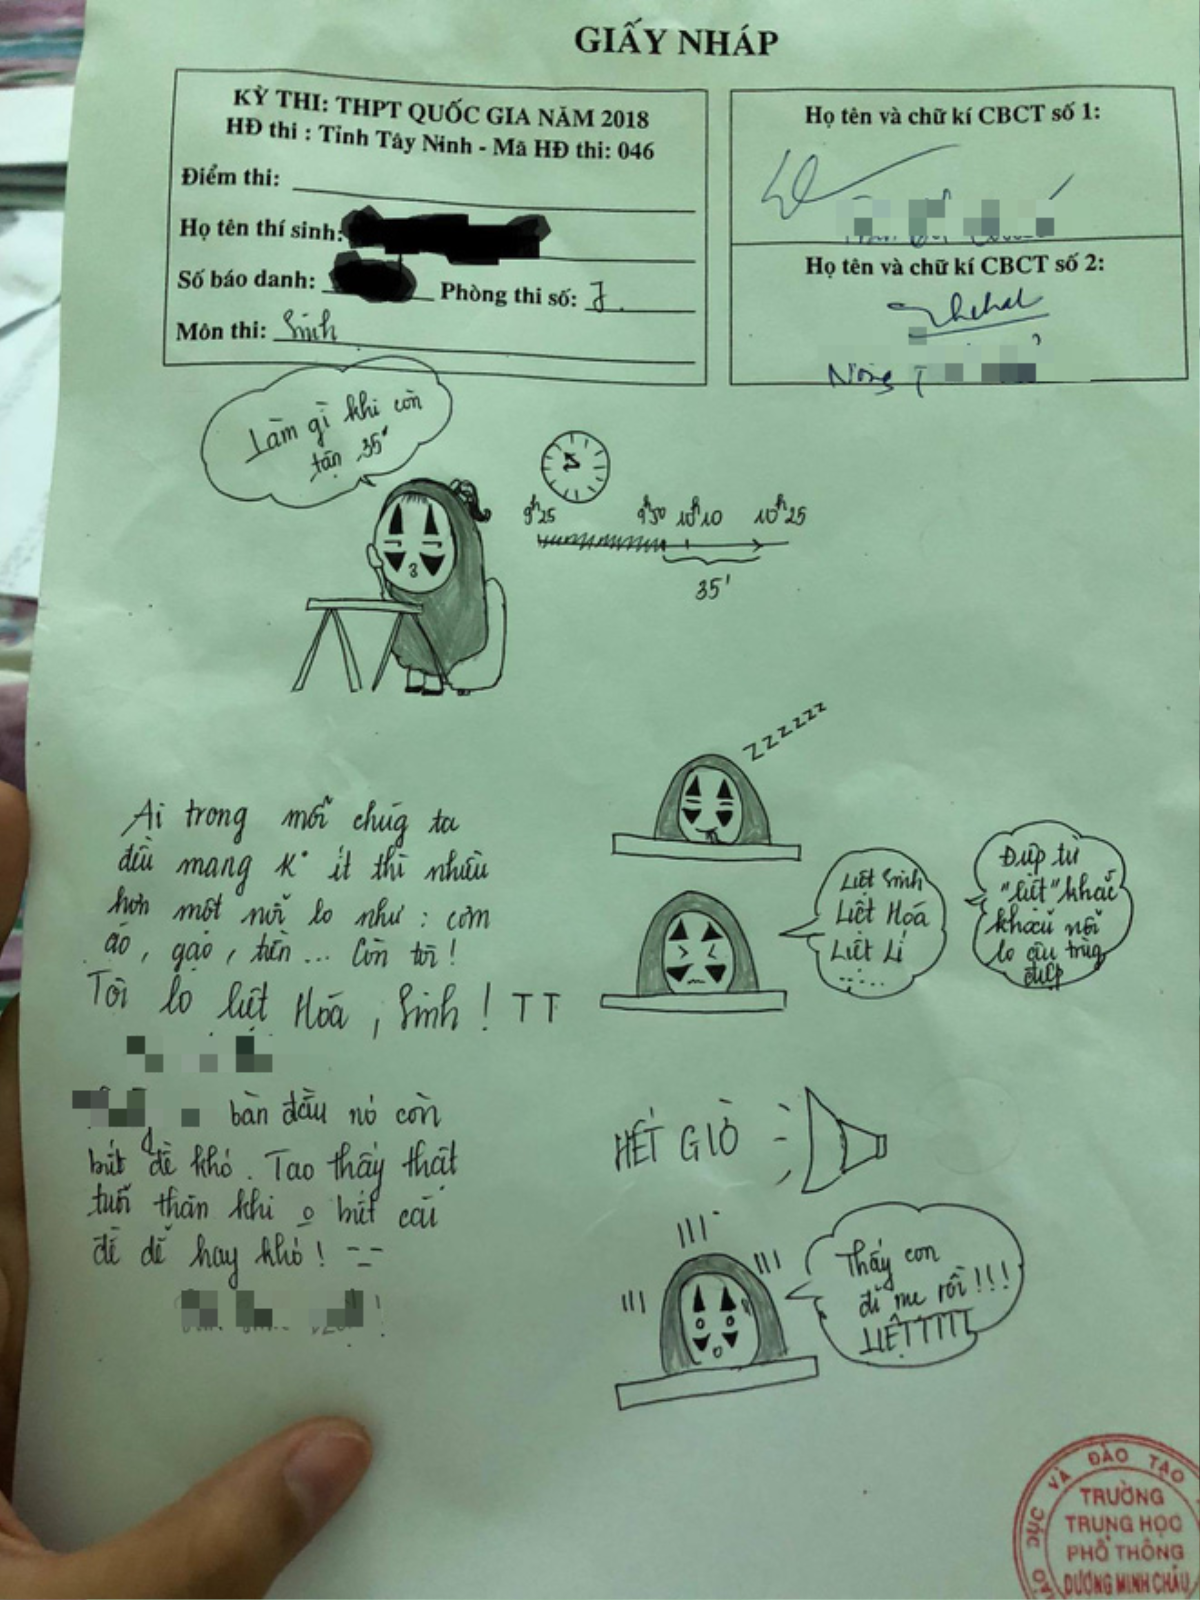 GIẤY NHÁP
KỲ THI: THPT QUỐC GIA NĂM 2018
HĐ thi : Tỉnh Tây Ninh - Mã HĐ thi: 046
Điểm thi:
Họ tên thí sinh:
Số báo danh:
Phòng thi số: 7.
Môn thi: Sinh
Họ tên và chữ kí CBCT số 1:
Họ tên và chữ kí CBCT số 2:
Nông T
Làm gì khi còn
tận 35'
9h25 9h50 10h10 10h25
35'
zzzzzz
Ai trong mỗi chúg ta
đều mang K° ít thì nhiều
hơn một nỗi lo như : cơm
áo, gạo, tiền... Còn tôi!
Tôi lo liệt Hóa, Sinh! TT
Liệt Sinh
Liệt Hóa
Liệt Lí
.....
Đụp từ
"liệt" khắc
khoải nỗi
lo câu trùg
điệp
bàn đầu nó còn
biết đề khó. Tao thấy thật
tuổi thân khi o biết cái
đề dễ hay khó! --
HẾT GIỜ
Thấy con
đi mẹ rồi!!!
LIỆTTTTT
DỤC VÀ ĐÀO TẠO
TRƯỜNG
TRUNG HỌC
PHỔ THÔNG
DƯƠNG MINH CHÂU